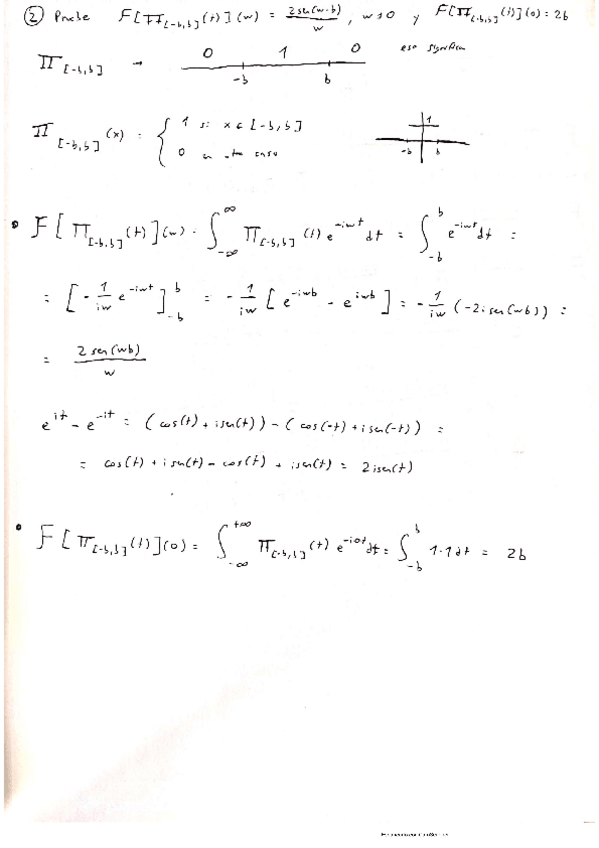 ② Pruebe F[Π_[-b,b](t)](w) = 2sen(w·b)/w , w≠0 y F[Π_[-b,b](t)](0) = 2b
Π_[-b,b] → 0 1 0 eso significa
-b b
Π_[-b,b](x) = { 1 si x ∈ [-b,b]
0 en otro caso
1
-b b
• F[Π_[-b,b](t)](w) = ∫_{-∞}^{∞} Π_[-b,b](t) e^{-iwt} dt = ∫_{-b}^{b} e^{-iwt} dt =
= [-1/(iw) e^{-iwt}]_{-b}^{b} = -1/(iw) [e^{-iwb} - e^{iwb}] = -1/(iw) (-2i sen(wb)) =
= 2 sen(wb)/w
e^{it} - e^{-it} = (cos(t) + i sen(t)) - (cos(-t) + i sen(-t)) =
= cos(t) + i sen(t) - cos(t) + i sen(t) = 2i sen(t)
• F[Π_[-b,b](t)](0) = ∫_{-∞}^{+∞} Π_[-b,b](t) e^{-i0t} dt = ∫_{-b}^{b} 1·1 dt = 2b